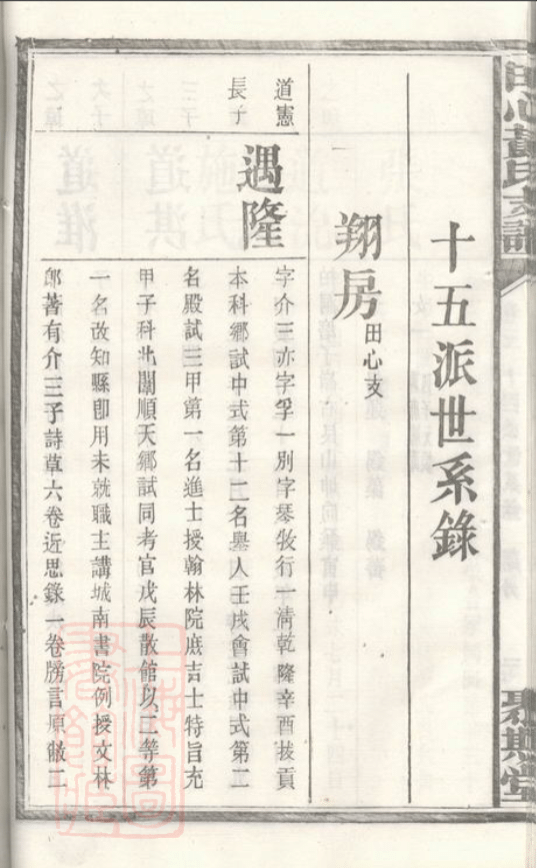 田心黃氏支譜
慰期堂
十五派世系錄
翔房田心支
道憲
長子
遇隆
字介三亦字孚一別字琴牧行一清乾隆辛酉拔貢
本科鄉試中式第十二名舉人壬戌會試中式第二
名殿試三甲第一名進士授翰林院庶吉士特旨充
甲子科北闈順天鄉試同考官戊辰散館以三等第
一名改知縣卽用未就職主講城南書院例授文林
郎著有介三子詩草六卷近思錄一卷牓言原徹二